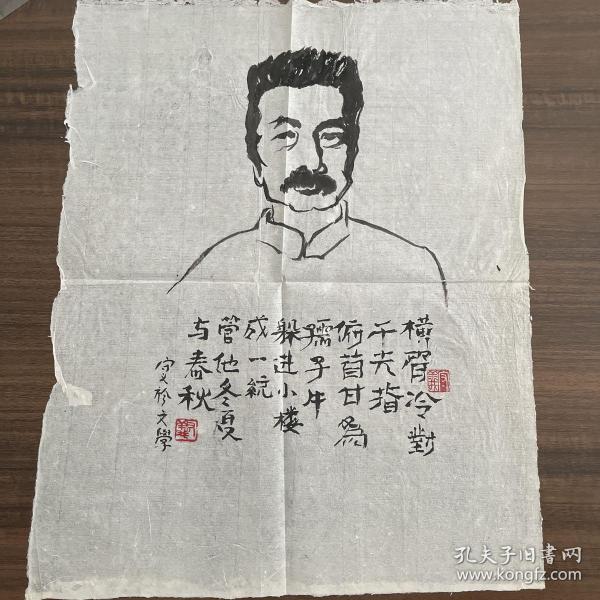 横眉冷對
千夫指
俯首甘為
孺子牛
躲进小楼
成一统
管他冬夏
与春秋
於文學
孔夫子旧书网
www.kongfz.com